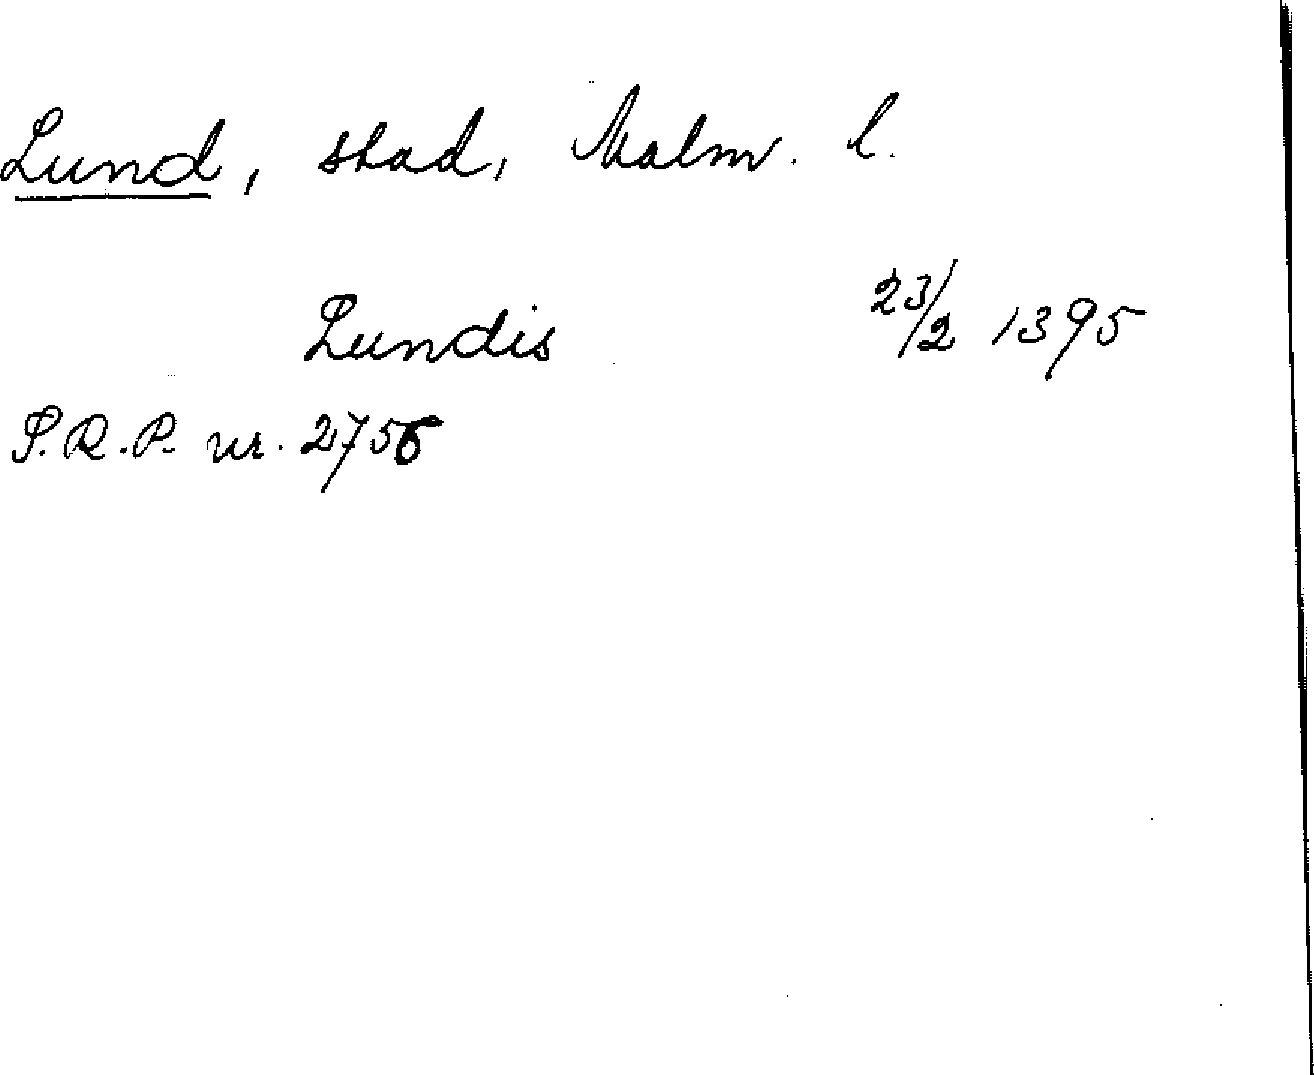 Lund, stad, Malm. l.
Lundis 23/2 1395
S.R.P. nr. 2756